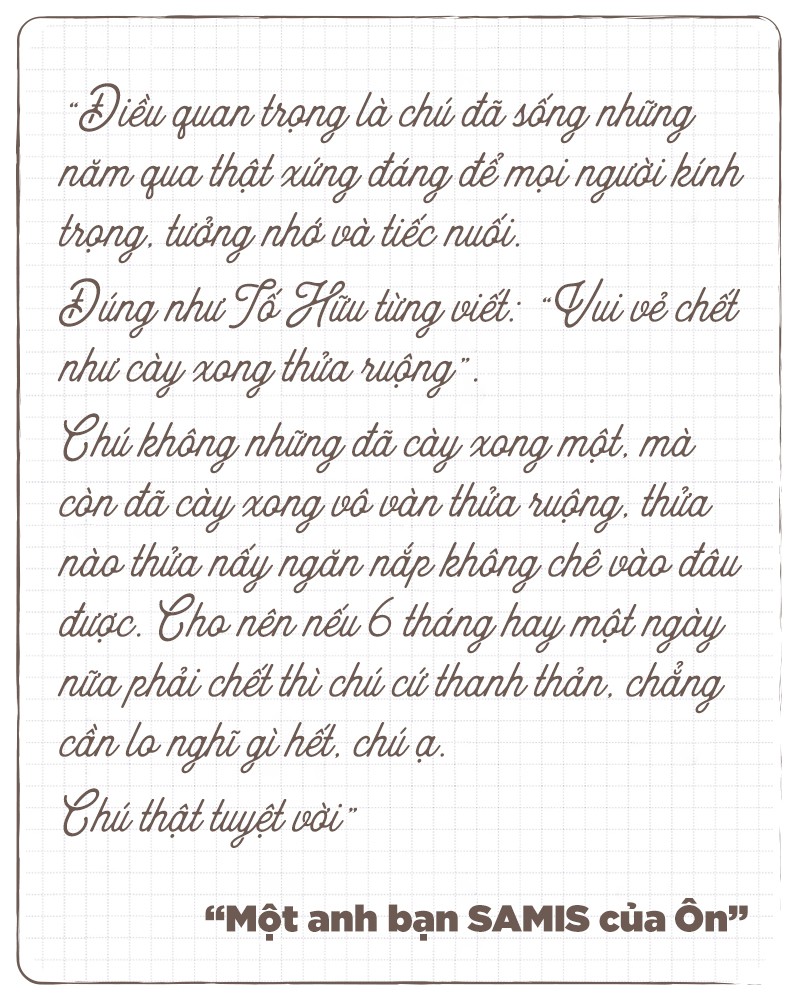 “Điều quan trọng là chú đã sống những
năm qua thật xứng đáng để mọi người kính
trọng, tưởng nhớ và tiếc nuối.
Đúng như Tố Hữu từng viết: “Vui vẻ chết
như cày xong thửa ruộng”.
Chú không những đã cày xong một, mà
còn đã cày xong vô vàn thửa ruộng, thửa
nào thửa nấy ngăn nắp không chê vào đâu
được. Cho nên nếu 6 tháng hay một ngày
nữa phải chết thì chú cứ thanh thản, chẳng
cần lo nghĩ gì hết, chú ạ.
Chú thật tuyệt vời”
“Một anh bạn SAMIS của Ôn”